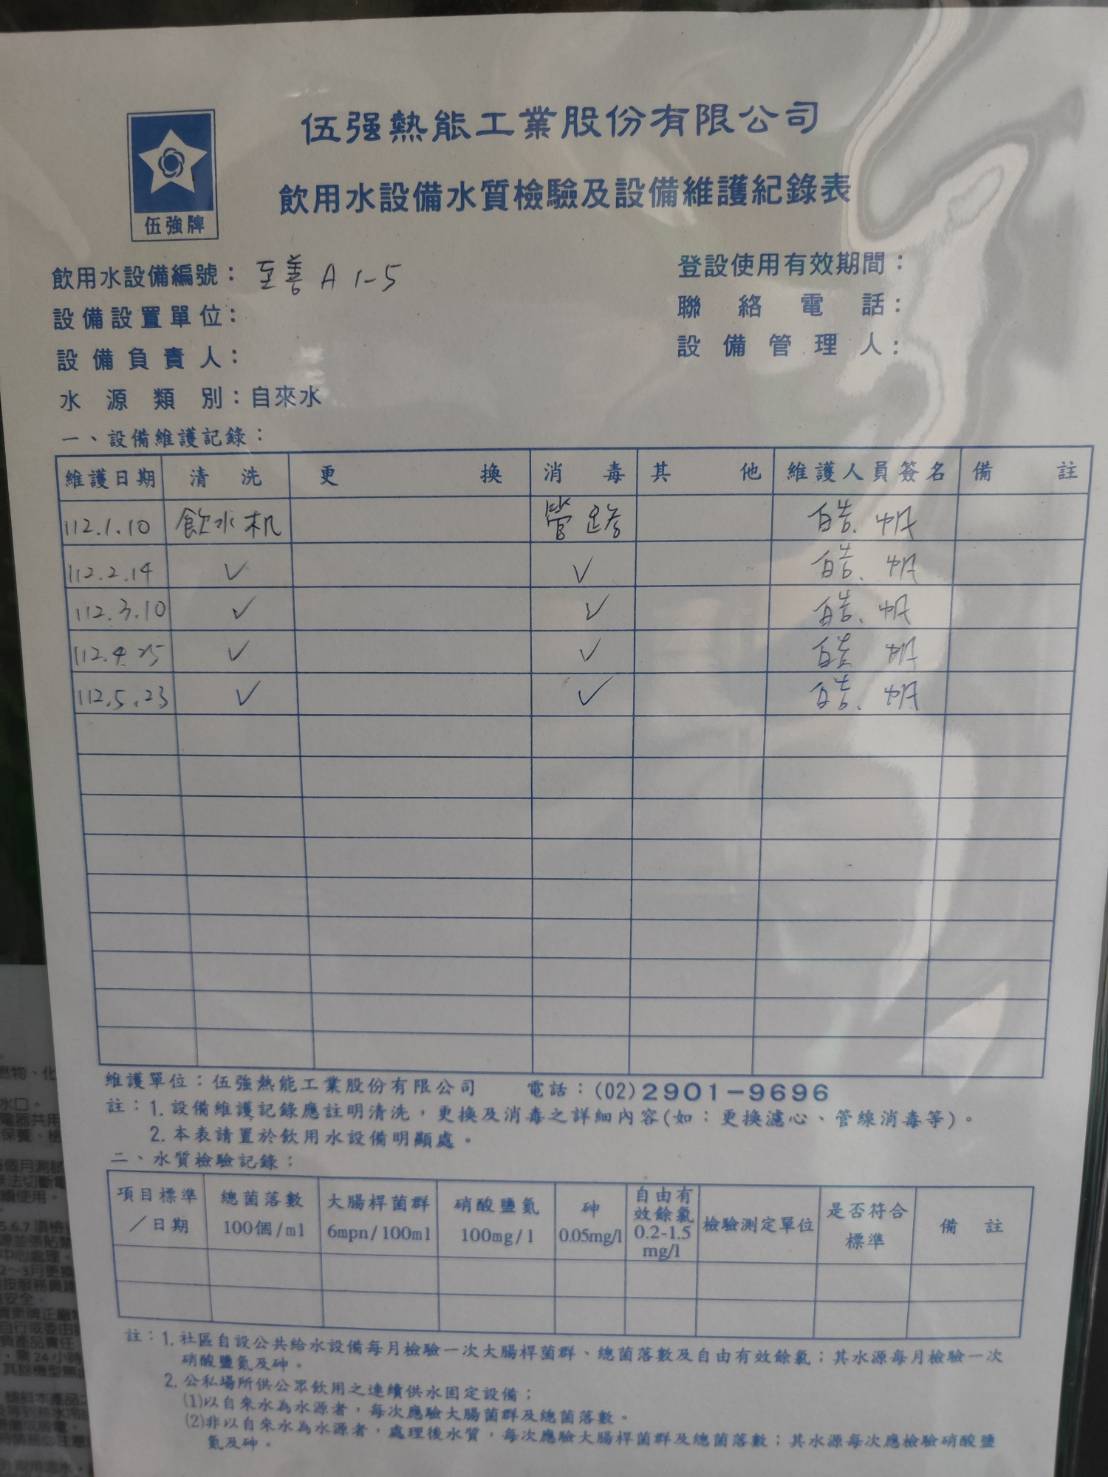 伍强熱能工業股份有限公司
飲用水設備水質檢驗及設備維護紀錄表
伍強牌
飲用水設備編號：至善 A 1-5
登設使用有效期間：
設備設置單位：
聯絡電話：
設備負責人：
設備管理人：
水源類別：自來水
一、設備維護記錄：
維護日期 清洗 更換 消毒 其他 維護人員簽名 備註
112.1.10 飲水机 管路 皓.帆
112.2.14 ✓ ✓ 皓.帆
112.3.10 ✓ ✓ 皓.帆
112.4.25 ✓ ✓ 皓帆
112.5.23 ✓ ✓ 皓.帆
維護單位：伍強熱能工業股份有限公司 電話：(02)2901-9696
註：1.設備維護記錄應註明清洗，更換及消毒之詳細內容(如：更換濾心、管線消毒等)。
2.本表請置於飲用水設備明顯處。
二、水質檢驗記錄：
項目標準／日期 總菌落數 100個/ml 大腸桿菌群 6mpn/100ml 硝酸鹽氮 100mg/l 砷 0.05mg/l 自由有效餘氯 0.2-1.5 mg/l 檢驗測定單位 是否符合標準 備註
註：1.社區自設公共給水設備每月檢驗一次大腸桿菌群、總菌落數及自由有效餘氯；其水源每月檢驗一次
硝酸鹽氮及砷。
2.公私場所供公眾飲用之連續供水固定設備：
(1)以自來水為水源者，每次應驗大腸菌群及總菌落數。
(2)非以自來水為水源者，處理後水質，每次應驗大腸桿菌群及總菌落數；其水源每次應檢驗硝酸鹽
氮及砷。